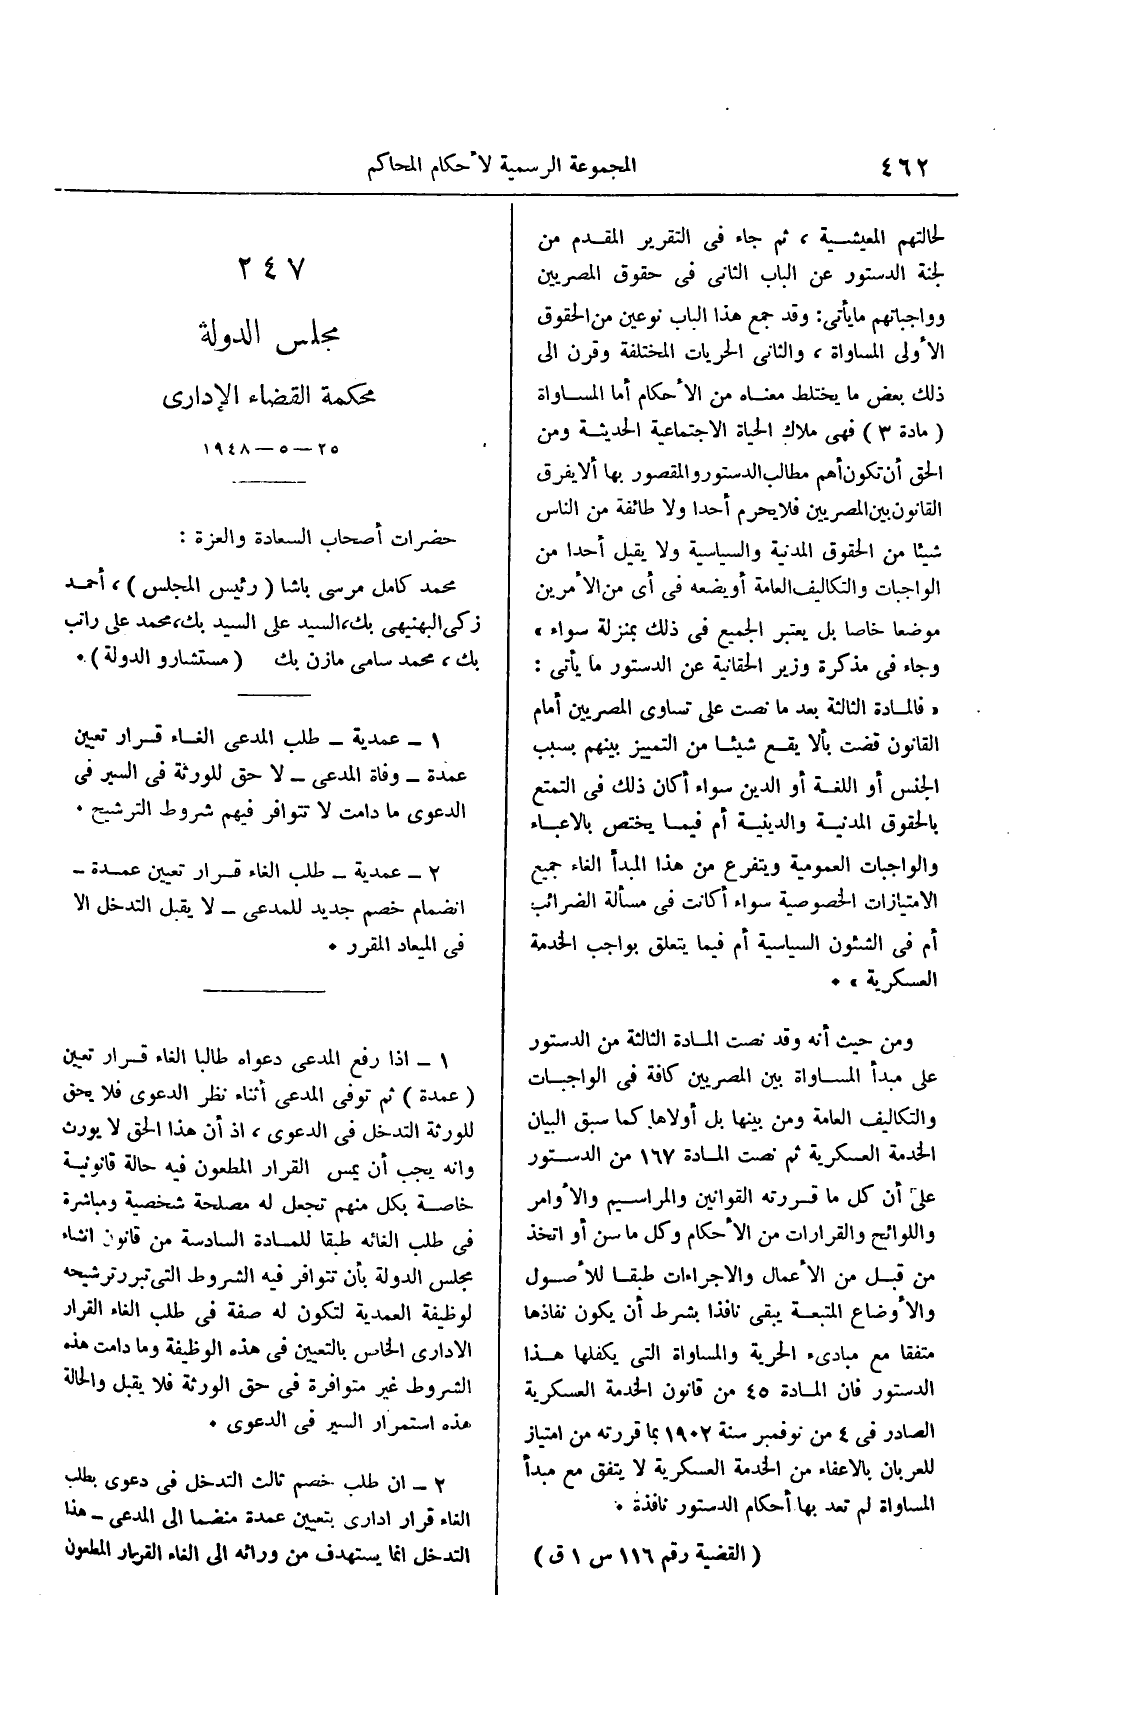 ٤٦٢
المجموعة الرسمية لأحكام المحاكم
لحالتهم المعيشــية ، ثم جاء فى التقرير المقدم من
لجنة الدستور عن الباب الثانى فى حقوق المصريين
وواجباتهم مايأتى: وقد جمع هذا الباب نوعين من الحقوق
الأولى المساواة ، والثانى الحريات المختلفة وقرن الى
ذلك بعض ما يختلط معناه من الأحكام أما المســاواة
( مادة ٣ ) فهى ملاك الحياة الاجتماعية الحديثــة ومن
الحق أن تكون أهم مطالب الدستور والمقصور بها ألا يفرق
القانون بين المصريين فلا يحرم أحدا ولا طائفة من الناس
شيئا من الحقوق المدنية والسياسية ولا يقيل أحدا من
الواجبات والتكاليف العامة أو يضعه فى أى من الأمرين
موضعا خاصا بل يعتبر الجميع فى ذلك بمنزلة سواء »
وجاء فى مذكرة وزير الحقانية عن الدستور ما يأتى :
« فالمــادة الثالثة بعد ما نصت على تساوى المصريين أمام
القانون قضت بألا يقــع شيئــا من التمييز بينهم بسبب
الجنس أو اللغــة أو الدين سواء أكان ذلك فى التمتع
بالحقوق المدنيــة والدينيــة أم فيمــا يختص بالاعبــاء
والواجبات العمومية ويتفرع من هذا المبدأ الغاء جميع
الامتيازات الخصوصية سواء أكانت فى مسألة الضرائب
أم فى الشئون السياسية أم فيما يتعلق بواجب الخدمة
العسكرية » ٠
ومن حيث أنه وقد نصت المــادة الثالثة من الدستور
على مبدأ المســاواة بين المصريين كافة فى الواجبــات
والتكاليف العامة ومن بينها بل أولاها كما سبق البيان
الخدمة العسكرية ثم نصت المــادة ١٦٧ من الدســتور
على أن كل ما قــررته القوانين والمراســيم والأوامر
واللوائح والقرارات من الأحكام وكل ما سن أو اتخذ
من قبــل من الأعمال والاجراءات طبقــا للأصــول
والأوضاع المتبعــة يبقى نافذا بشرط أن يكون نفاذها
متفقا مع مبادىء الحرية والمساواة التى يكفلها هــذا
الدستور فان المــادة ٤٥ من قانون الخدمة العسكرية
الصادر فى ٤ من نوفمبر سنة ١٩٠٢ بما قررته من امتياز
للعربان بالاعفاء من الخدمة العسكرية لا يتفق مع مبدأ
المساواة لم تعد بها أحكام الدستور نافذة ٠
( القضية رقم ١١٦ س ١ ق )
٢٤٧
مجلس الدولة
محكمة القضاء الإدارى
٢٥ – ٥ – ١٩٤٨
حضرات أصحاب السعادة والعزة :
محمد كامل مرسى باشا ( رئيس المجلس ) ، أحمــد
زكى البهنيهى بك، السيد على السيد بك، محمد على راتب
بك ، محمد سامى مازن بك ( مستشارو الدولة ) ٠
١ – عمدية – طلب المدعى الغــاء قــرار تعيين
عمدة – وفاة المدعى – لا حق للورثة فى السير فى
الدعوى ما دامت لا تتوافر فيهم شروط الترشيح ٠
٢ – عمدية – طلب الغاء قــرار تعيين عمــدة –
انضمام خصم جديد للمدعى – لا يقبل التدخل الا
فى الميعاد المقرر ٠
١ – اذا رفع المدعى دعواه طالبا الغاء قــرار تعيين
( عمدة ) ثم توفى المدعى أثناء نظر الدعوى فلا يحق
للورثة التدخل فى الدعوى ، اذ أن هذا الحق لا يورث
وانه يجب أن يمس القرار المطعون فيه حالة قانونيــة
خاصــة بكل منهم تجعل له مصلحة شخصية ومباشرة
فى طلب الغائه طبقا للمــادة السادسة من قانون انشاء
مجلس الدولة بأن تتوافر فيه الشروط التى تبرر ترشيحه
لوظيفة العمدية لتكون له صفة فى طلب الغاء القرار
الادارى الخاص بالتعيين فى هذه الوظيفة وما دامت هذه
الشروط غير متوافرة فى حق الورثة فلا يقبل والحالة
هذه استمرار السير فى الدعوى ٠
٢ – ان طلب خصم ثالث التدخل فى دعوى بطلب
الغاء قرار ادارى بتعيين عمدة منضما الى المدعى – هذا
التدخل انما يستهدف من ورائه الى الغاء القرار المطعون